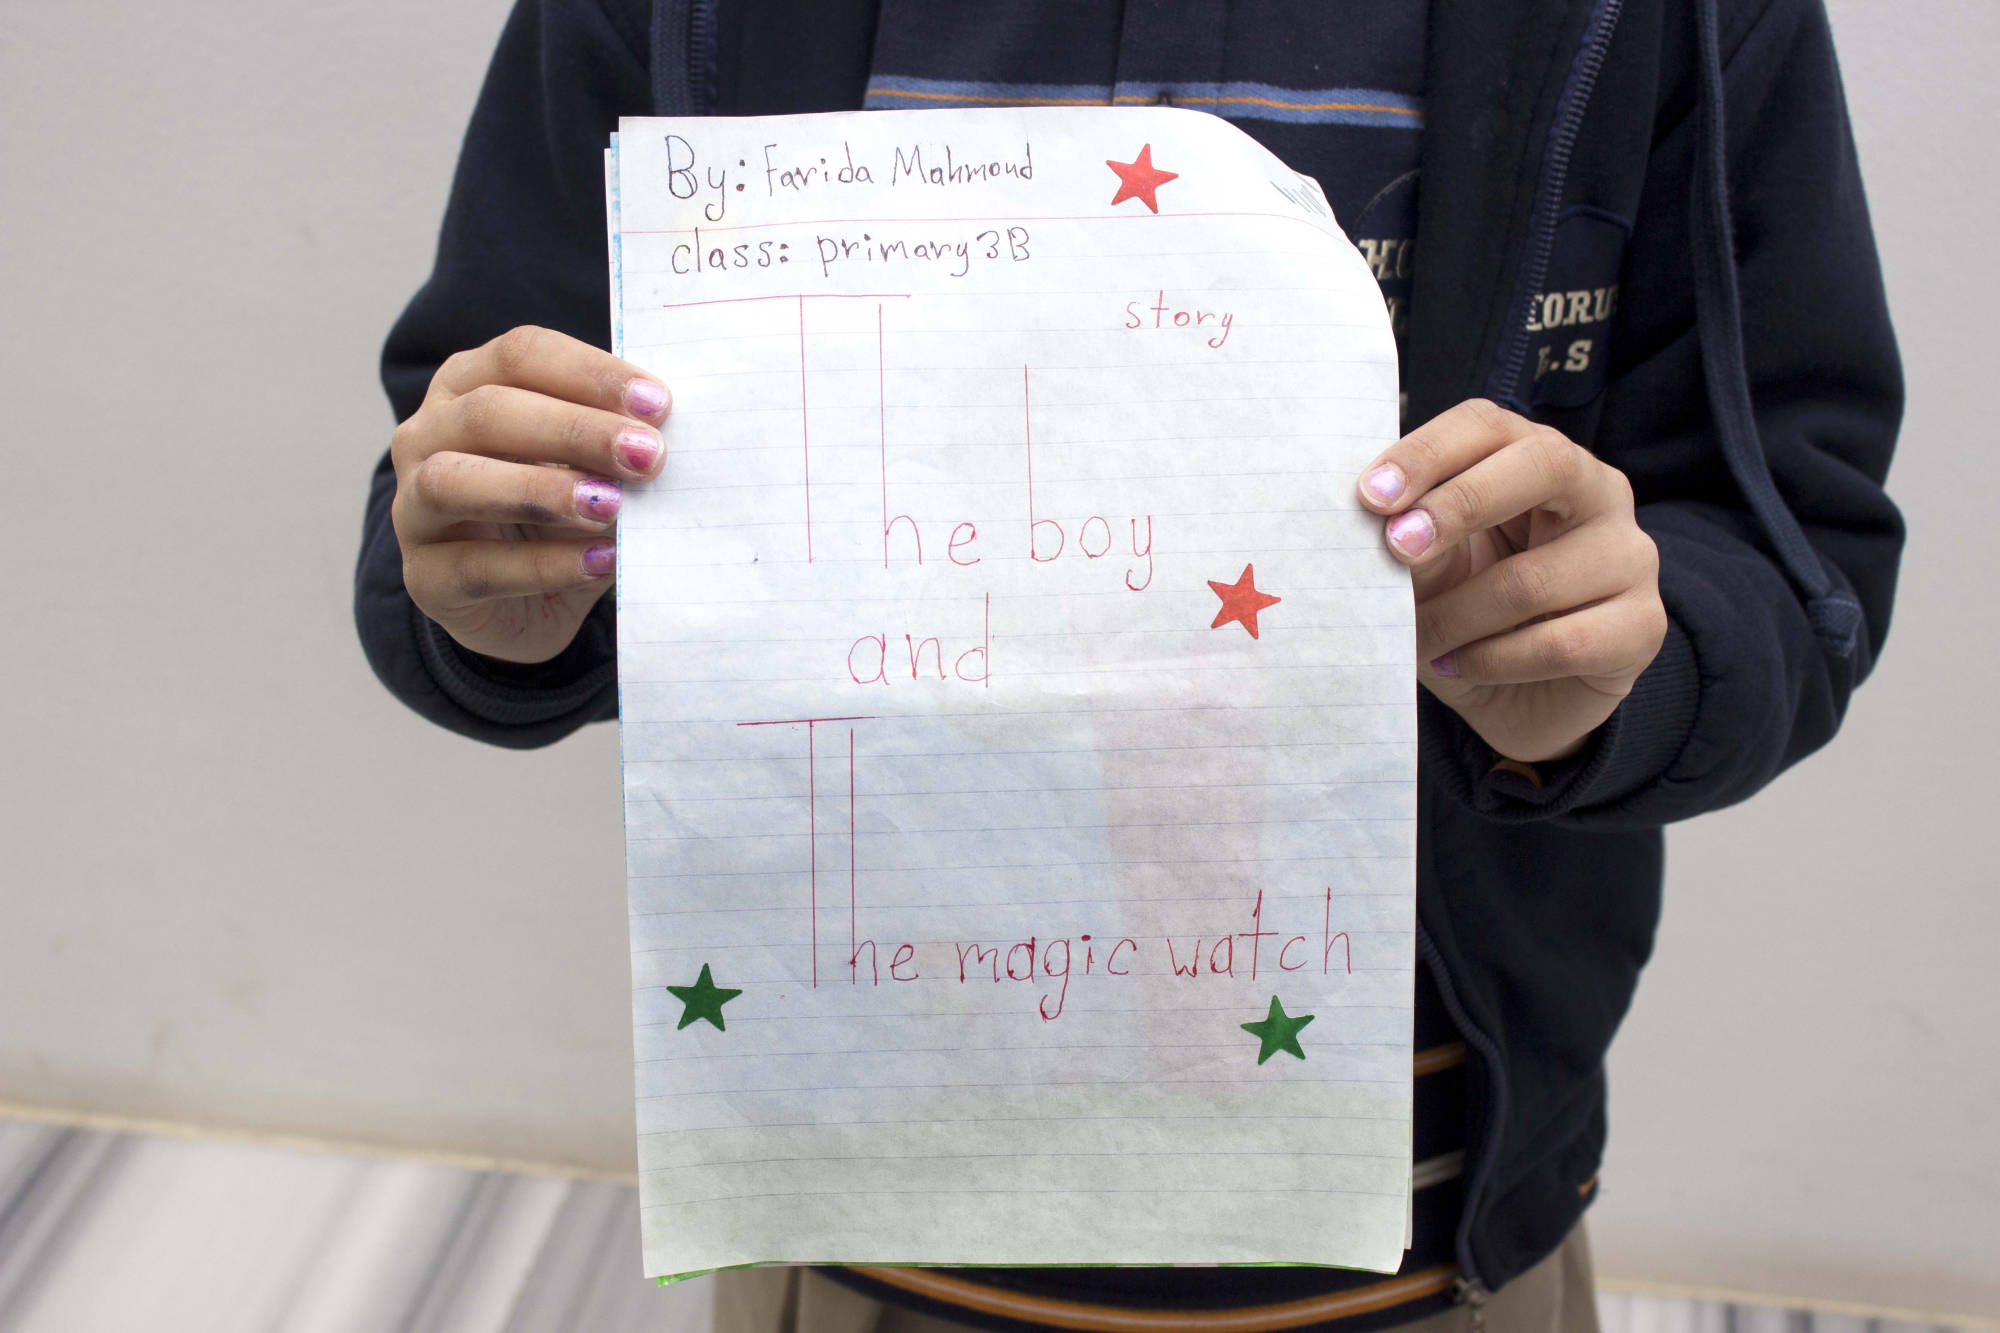 By: Farida Mahmoud
class: primary 3B
story
The boy
and
The magic watch